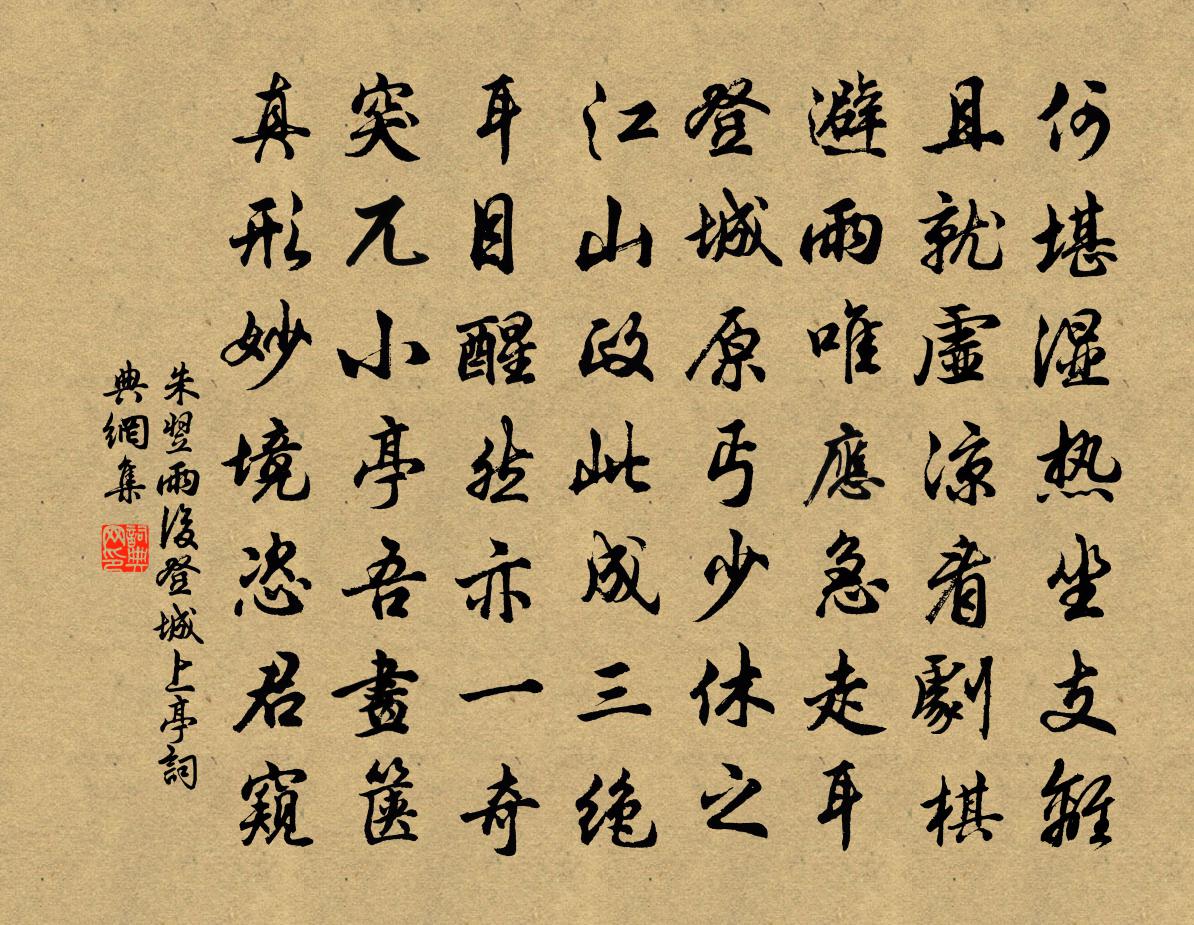 何堪湿热坐支離
且就虚涼看劇棋
避雨唯應急走耳
登城原丐少休之
江山政此成三絶
耳目醒然亦一奇
突兀小亭吾畫篋
真形妙境恣君窺
朱翌雨後登城上亭詞
典網集
詞典
网印